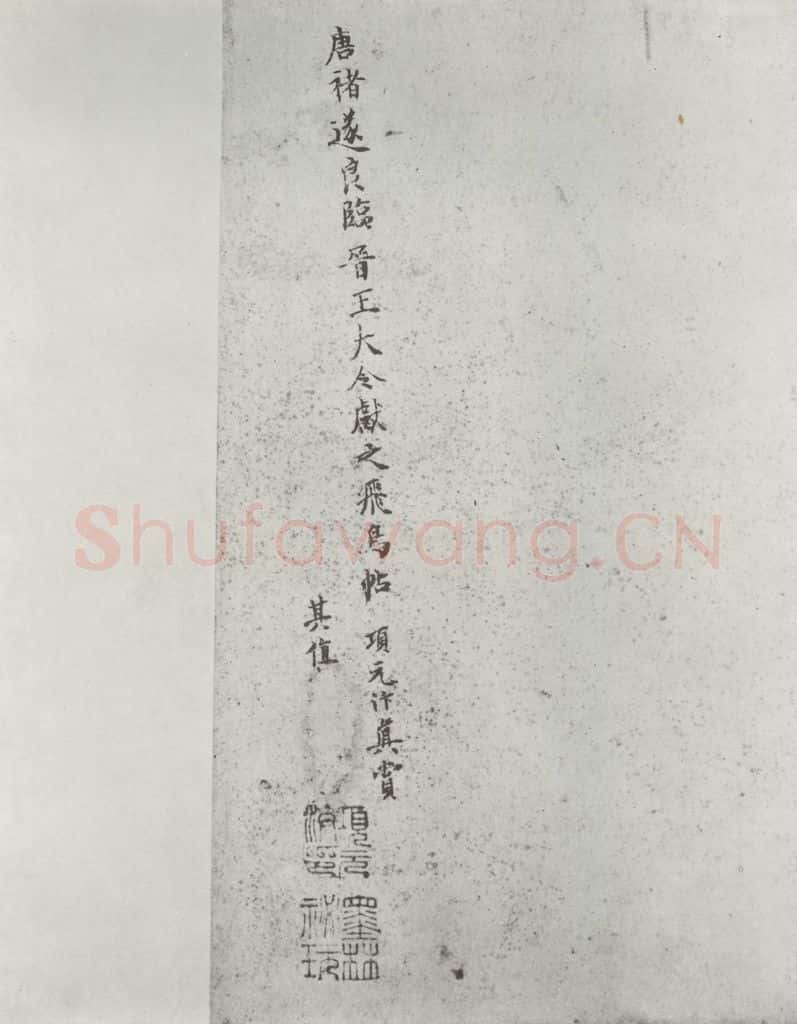 唐褚遂良臨晉王大令獻之飛鳥帖 項元汴真賞
其值
項元汴印
墨林祕玩
Shufawang.CN